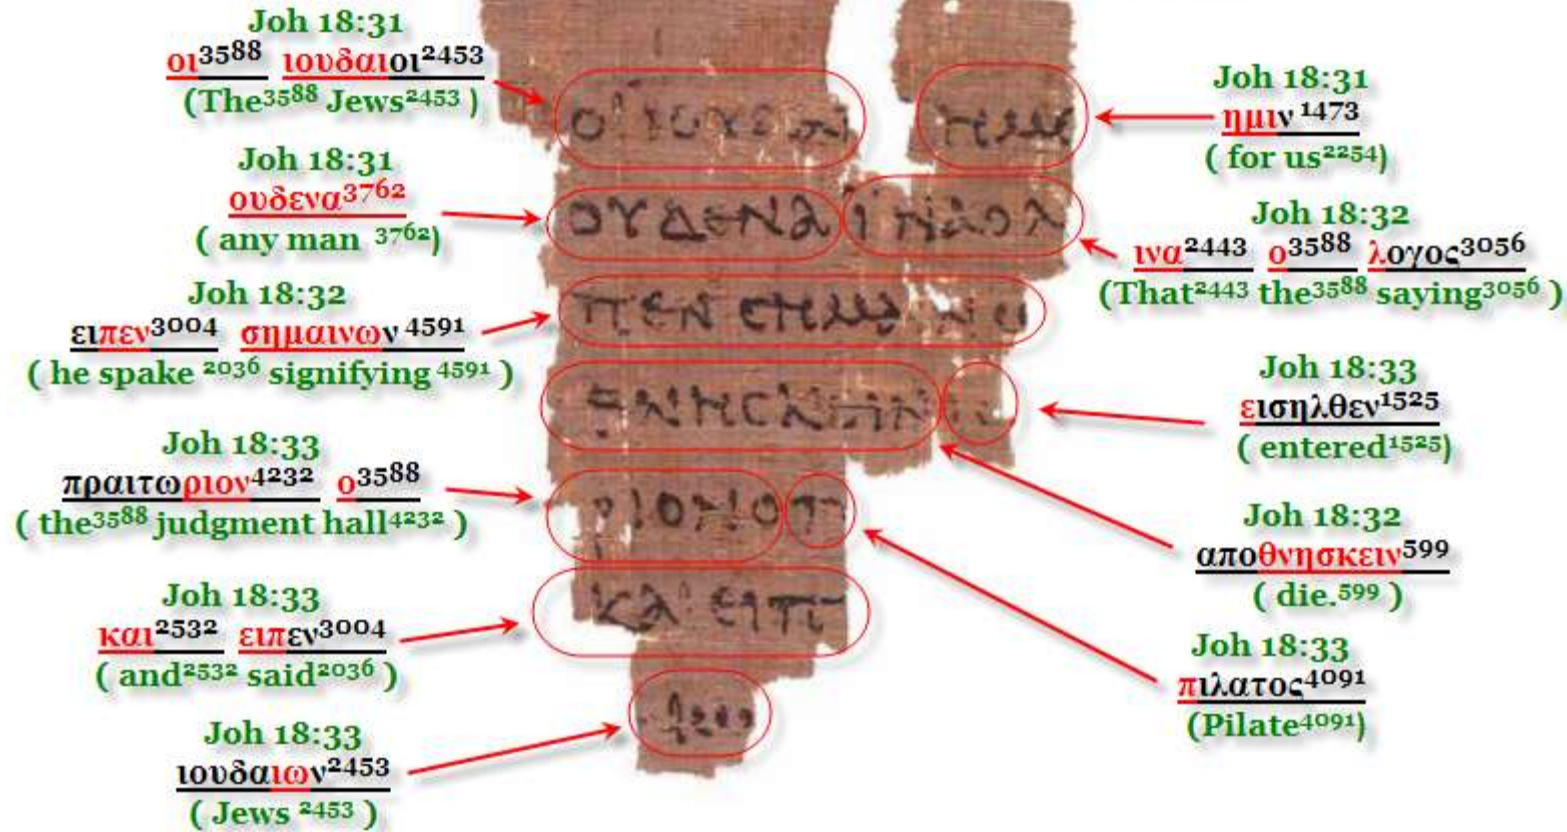 Joh 18:31
οι3588 ιουδαιοι2453
(The3588 Jews2453 )
Joh 18:31
ουδενα3762
( any man 3762)
Joh 18:32
ειπεν3004 σημαινων 4591
( he spake 2036 signifying 4591 )
Joh 18:33
πραιτωριον4232 ο3588
( the3588 judgment hall4232 )
Joh 18:33
και2532 ειπεν3004
( and2532 said2036 )
Joh 18:33
ιουδαιων2453
( Jews 2453 )
ΟΙ ΙΟΥΔΑΙ ΗΜΙ
ΟΥΔΕΝΑ ΙΝΑ Ο Λ
ΠΕΝ ΣΗΜΑΙΝΩ
ΘΝΗΣΚΕΙΝ Ε
ΡΙΟΝ Ο Π
ΚΑΙ ΕΙΠ
Joh 18:31
ημιν 1473
( for us2254)
Joh 18:32
ινα2443 ο3588 λογος3056
(That2443 the3588 saying3056 )
Joh 18:33
εισηλθεν1525
( entered1525)
Joh 18:32
αποθνησκειν599
( die.599 )
Joh 18:33
πιλατος4091
(Pilate4091)